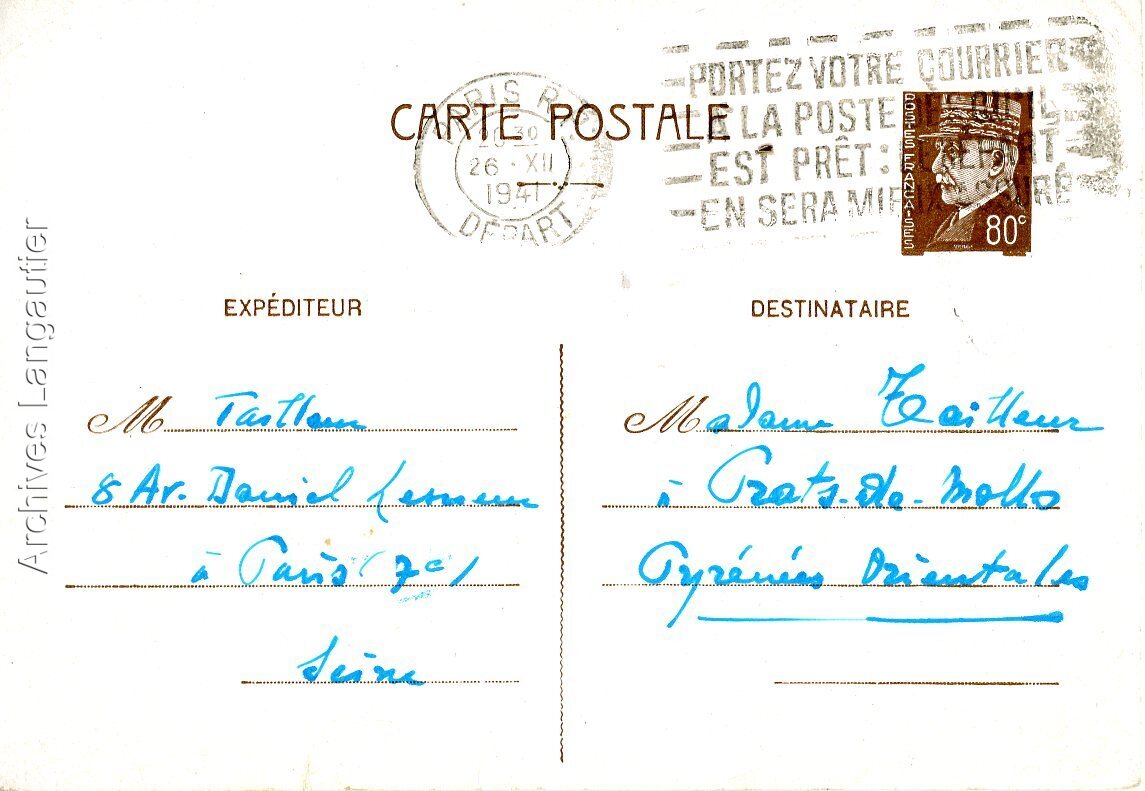 PORTEZ VOTRE COURRIER
A LA POSTE DÈS QU'IL
EST PRÊT: LE DÉPART
EN SERA MIEUX ASSURÉ
PARIS R.P.
30
26 · XII
1941
DÉPART
CARTE POSTALE
POSTES FRANÇAISES
80c
EXPÉDITEUR
M Tailleur
8 Av. Daniel Lesueur
à Paris (7e)
Seine
DESTINATAIRE
Madame Tailleur
à Prats-de-Mollo
Pyrénées Orientales
Archives Langautier